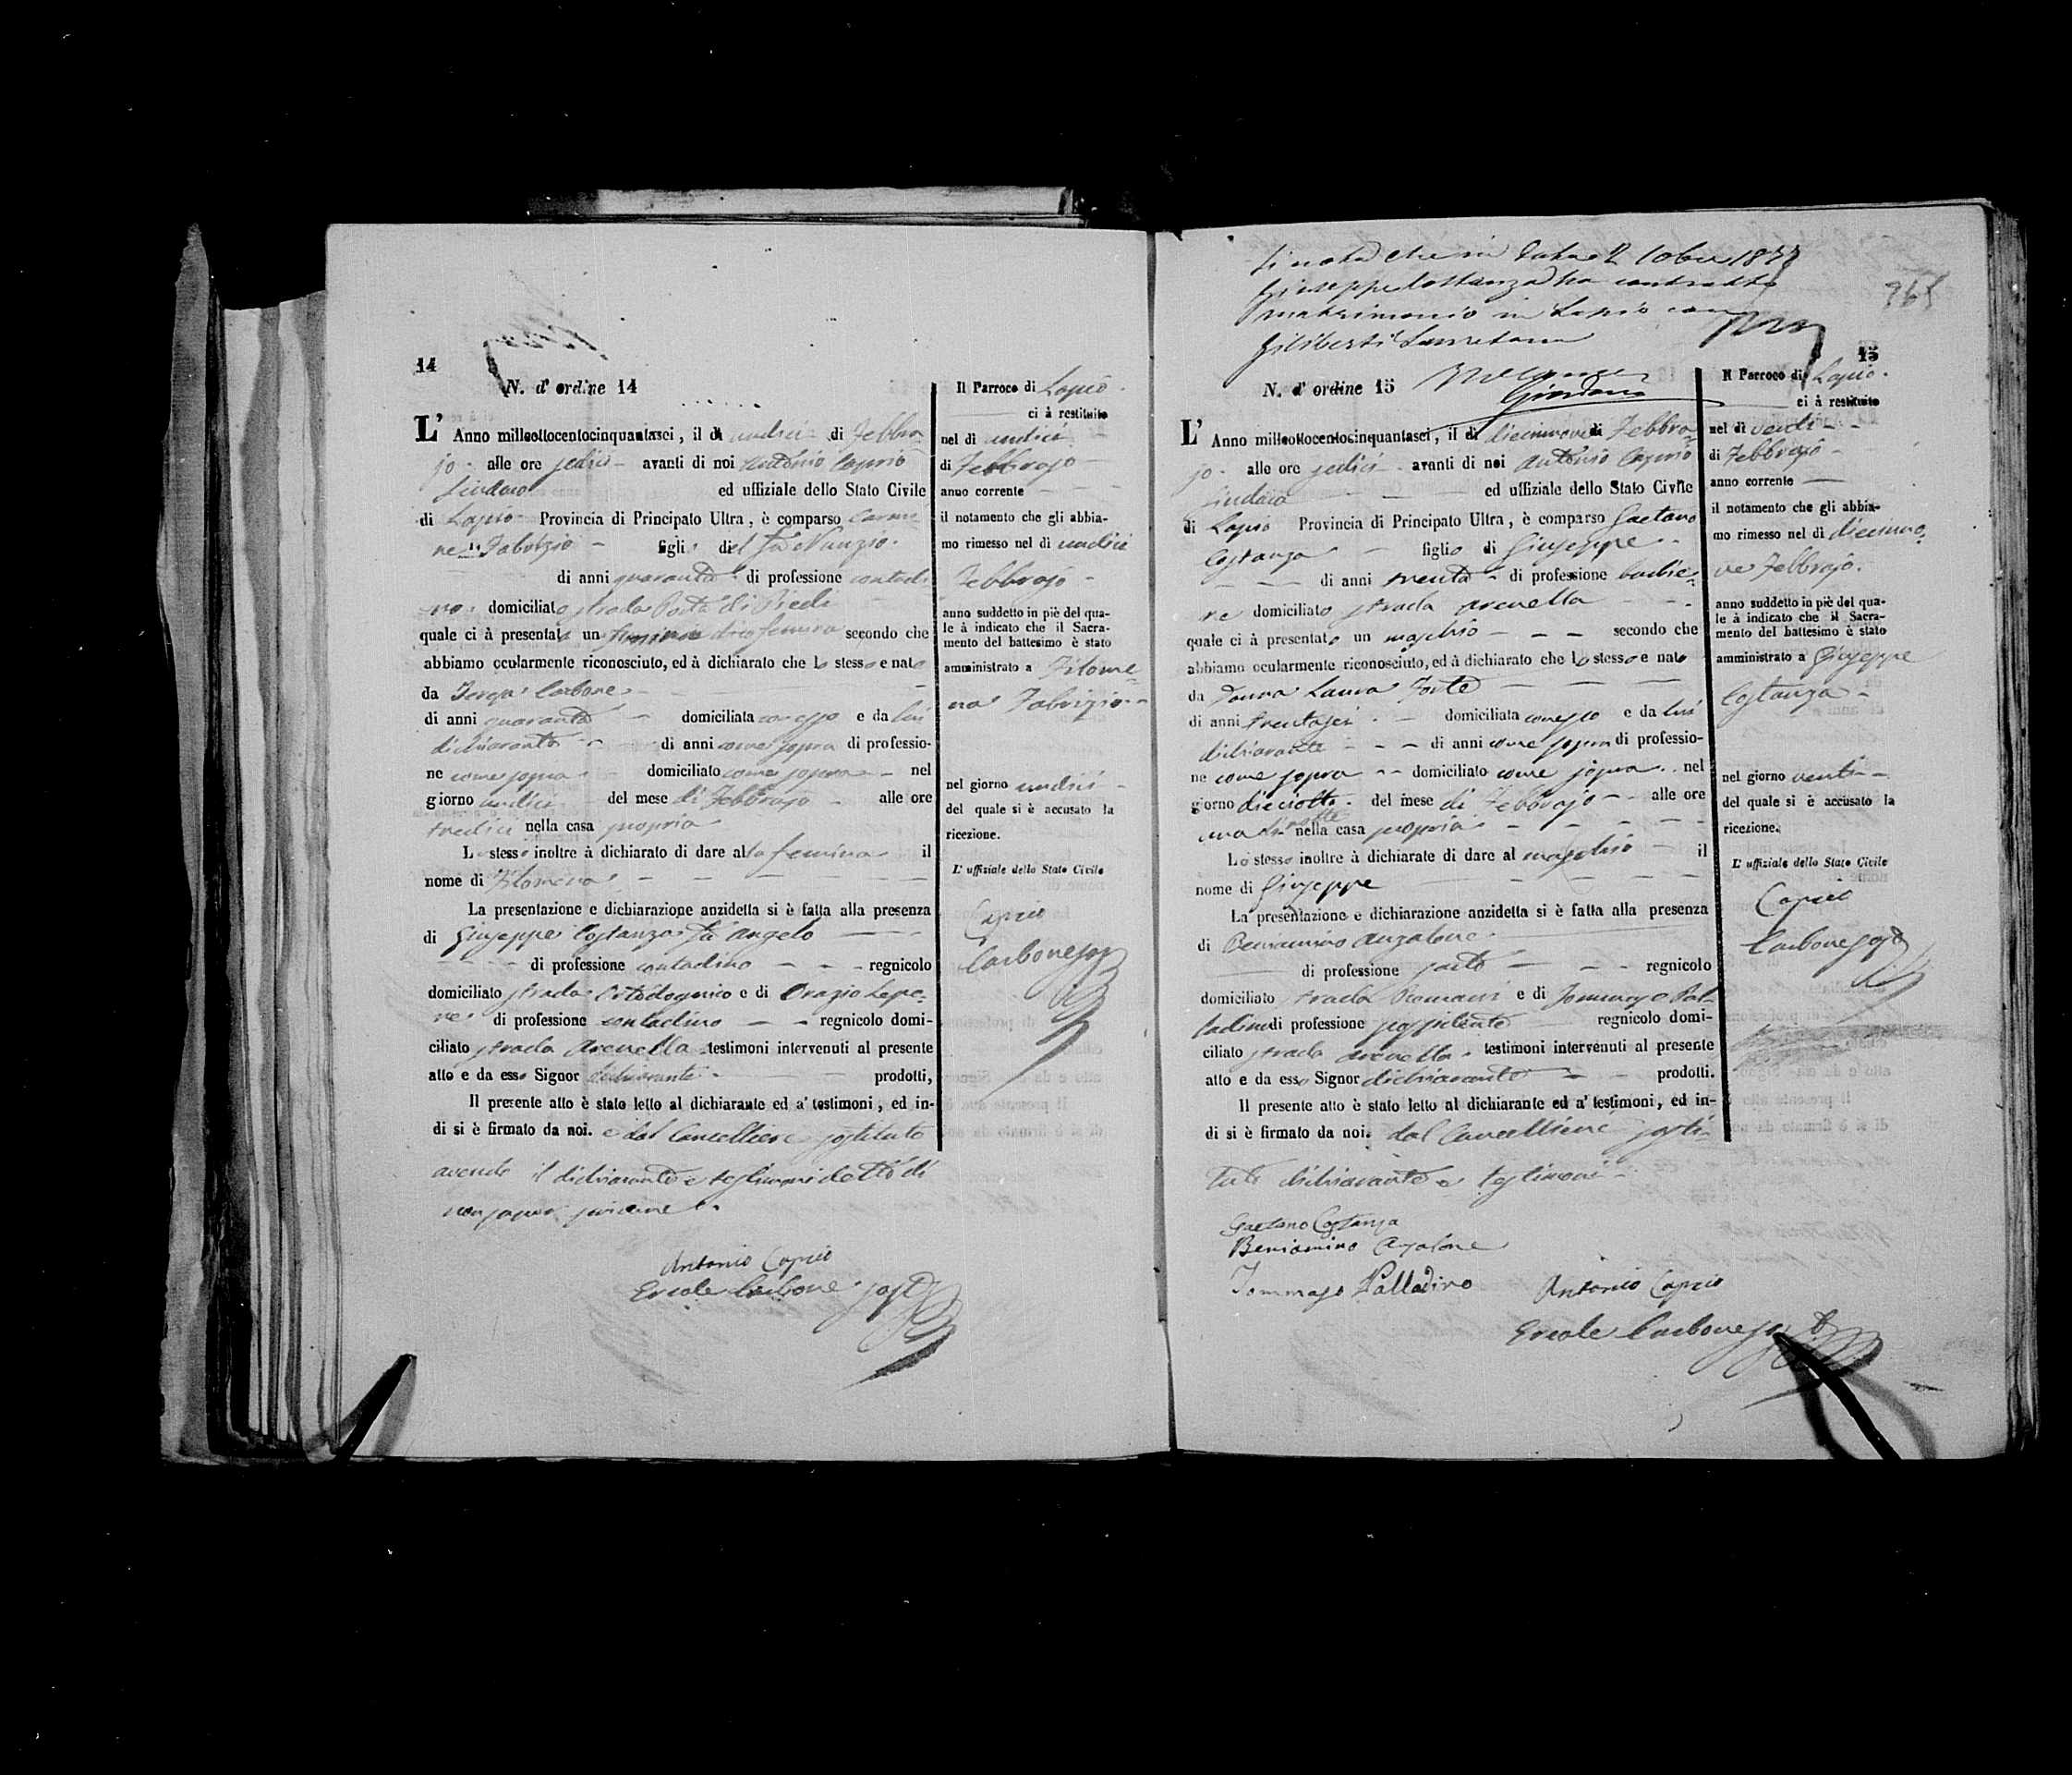 14
N. d'ordine 14
L' Anno milleottocentocinquantasei, il dì undici di Febbra
jo alle ore sedici avanti di noi Antonio Caprio
Sindaco ed uffiziale dello Stato Civile
di Lapio Provincia di Principato Ultra, è comparso Carmi
ne Fabrizio figlio del fu Nunzio
di anni quaranta di professione contadi
no domiciliato strada Porta di Piedi
quale ci à presentato un femina secondo che
abbiamo ocularmente riconosciuto, ed à dichiarato che lo stesso e nato
da Teresa Carbone
di anni quaranta domiciliata con esso e da lui
dichiarante di anni come sopra di professio-
ne come sopra domiciliato come sopra nel
giorno undici del mese di Febbrajo alle ore
tredici nella casa propria
Lo stesso inoltre à dichiarato di dare alla femina il
nome di Filomena
La presentazione e dichiarazione anzidetta si è fatta alla presenza
di Giuseppe Costanza fu Angelo
di professione contadino regnicolo
domiciliato strada e di Orazio Lepo-
re di professione contadino regnicolo domi-
ciliato strada Arenella testimoni intervenuti al presente
atto e da esso Signor dichiarante prodotti,
Il presente atto è stato letto al dichiarante ed a' testimoni, ed in-
di si è firmato da noi. e dal Cancelliere sostituto
avendo il dichiarante e testimoni detto di
non saper scrivere.
Antonio Caprio
Ercole Carbone sost
Il Parroco di Lapio
ci à restituito
nel dì undici
di Febbrajo
anno corrente
il notamento che gli abbia-
mo rimesso nel dì undici
Febbrajo
anno suddetto in piè del qua-
le à indicato che il Sacra-
mento del battesimo è stato
amministrato a Filome
na Fabrizio
nel giorno undici
del quale si è accusato la
ricezione.
L' uffiziale dello Stato Civile
Caprio
Carbone sost
Si nota che in data 2 10bre 1877
Giuseppe Costanza ha contratto
matrimonio in Lapio con
Giliberti Lauretana
Giordano
965
15
N. d'ordine 15
L' Anno milleottocentocinquantasei, il dì diecinnove di Febbra
jo alle ore sedici avanti di noi Antonio Caprio
Sindaco ed uffiziale dello Stato Civile
di Lapio Provincia di Principato Ultra, è comparso Gaetano
Costanza figlio di Giuseppe
di anni trenta di professione barbie-
re domiciliato strada Arenella
quale ci à presentato un maschio secondo che
abbiamo ocularmente riconosciuto, ed à dichiarato che lo stesso e nato
da Donna Laura Forte
di anni trentasei domiciliata con esso e da lui
dichiarante di anni come sopra di professio-
ne come sopra domiciliato come sopra nel
giorno dieciotto del mese di Febbrajo alle ore
una di notte nella casa propria
Lo stesso inoltre à dichiarato di dare al maschio il
nome di Giuseppe
La presentazione e dichiarazione anzidetta si è fatta alla presenza
di Beniamino Anzalone
di professione sarto regnicolo
domiciliato strada Romani e di Tommaso Pal-
ladino di professione possidente regnicolo domi-
ciliato strada Arenella testimoni intervenuti al presente
atto e da esso Signor dichiarante prodotti.
Il presente atto è stato letto al dichiarante ed a' testimoni, ed in-
di si è firmato da noi. dal Cancelliere sosti-
tuto dichiarante e testimoni
Gaetano Costanza
Beniamino Anzalone
Tommaso Palladino
Antonio Caprio
Ercole Carbone sost
Il Parroco di Lapio
ci à restituito
nel dì venti
di Febbrajo
anno corrente
il notamento che gli abbia-
mo rimesso nel dì diecinno-
ve Febbrajo.
anno suddetto in piè del qua-
le à indicato che il Sacra-
mento del battesimo è stato
amministrato a Giuseppe
Costanza
nel giorno venti
del quale si è accusato la
ricezione.
L' uffiziale dello Stato Civile
Caprio
Carbone sost